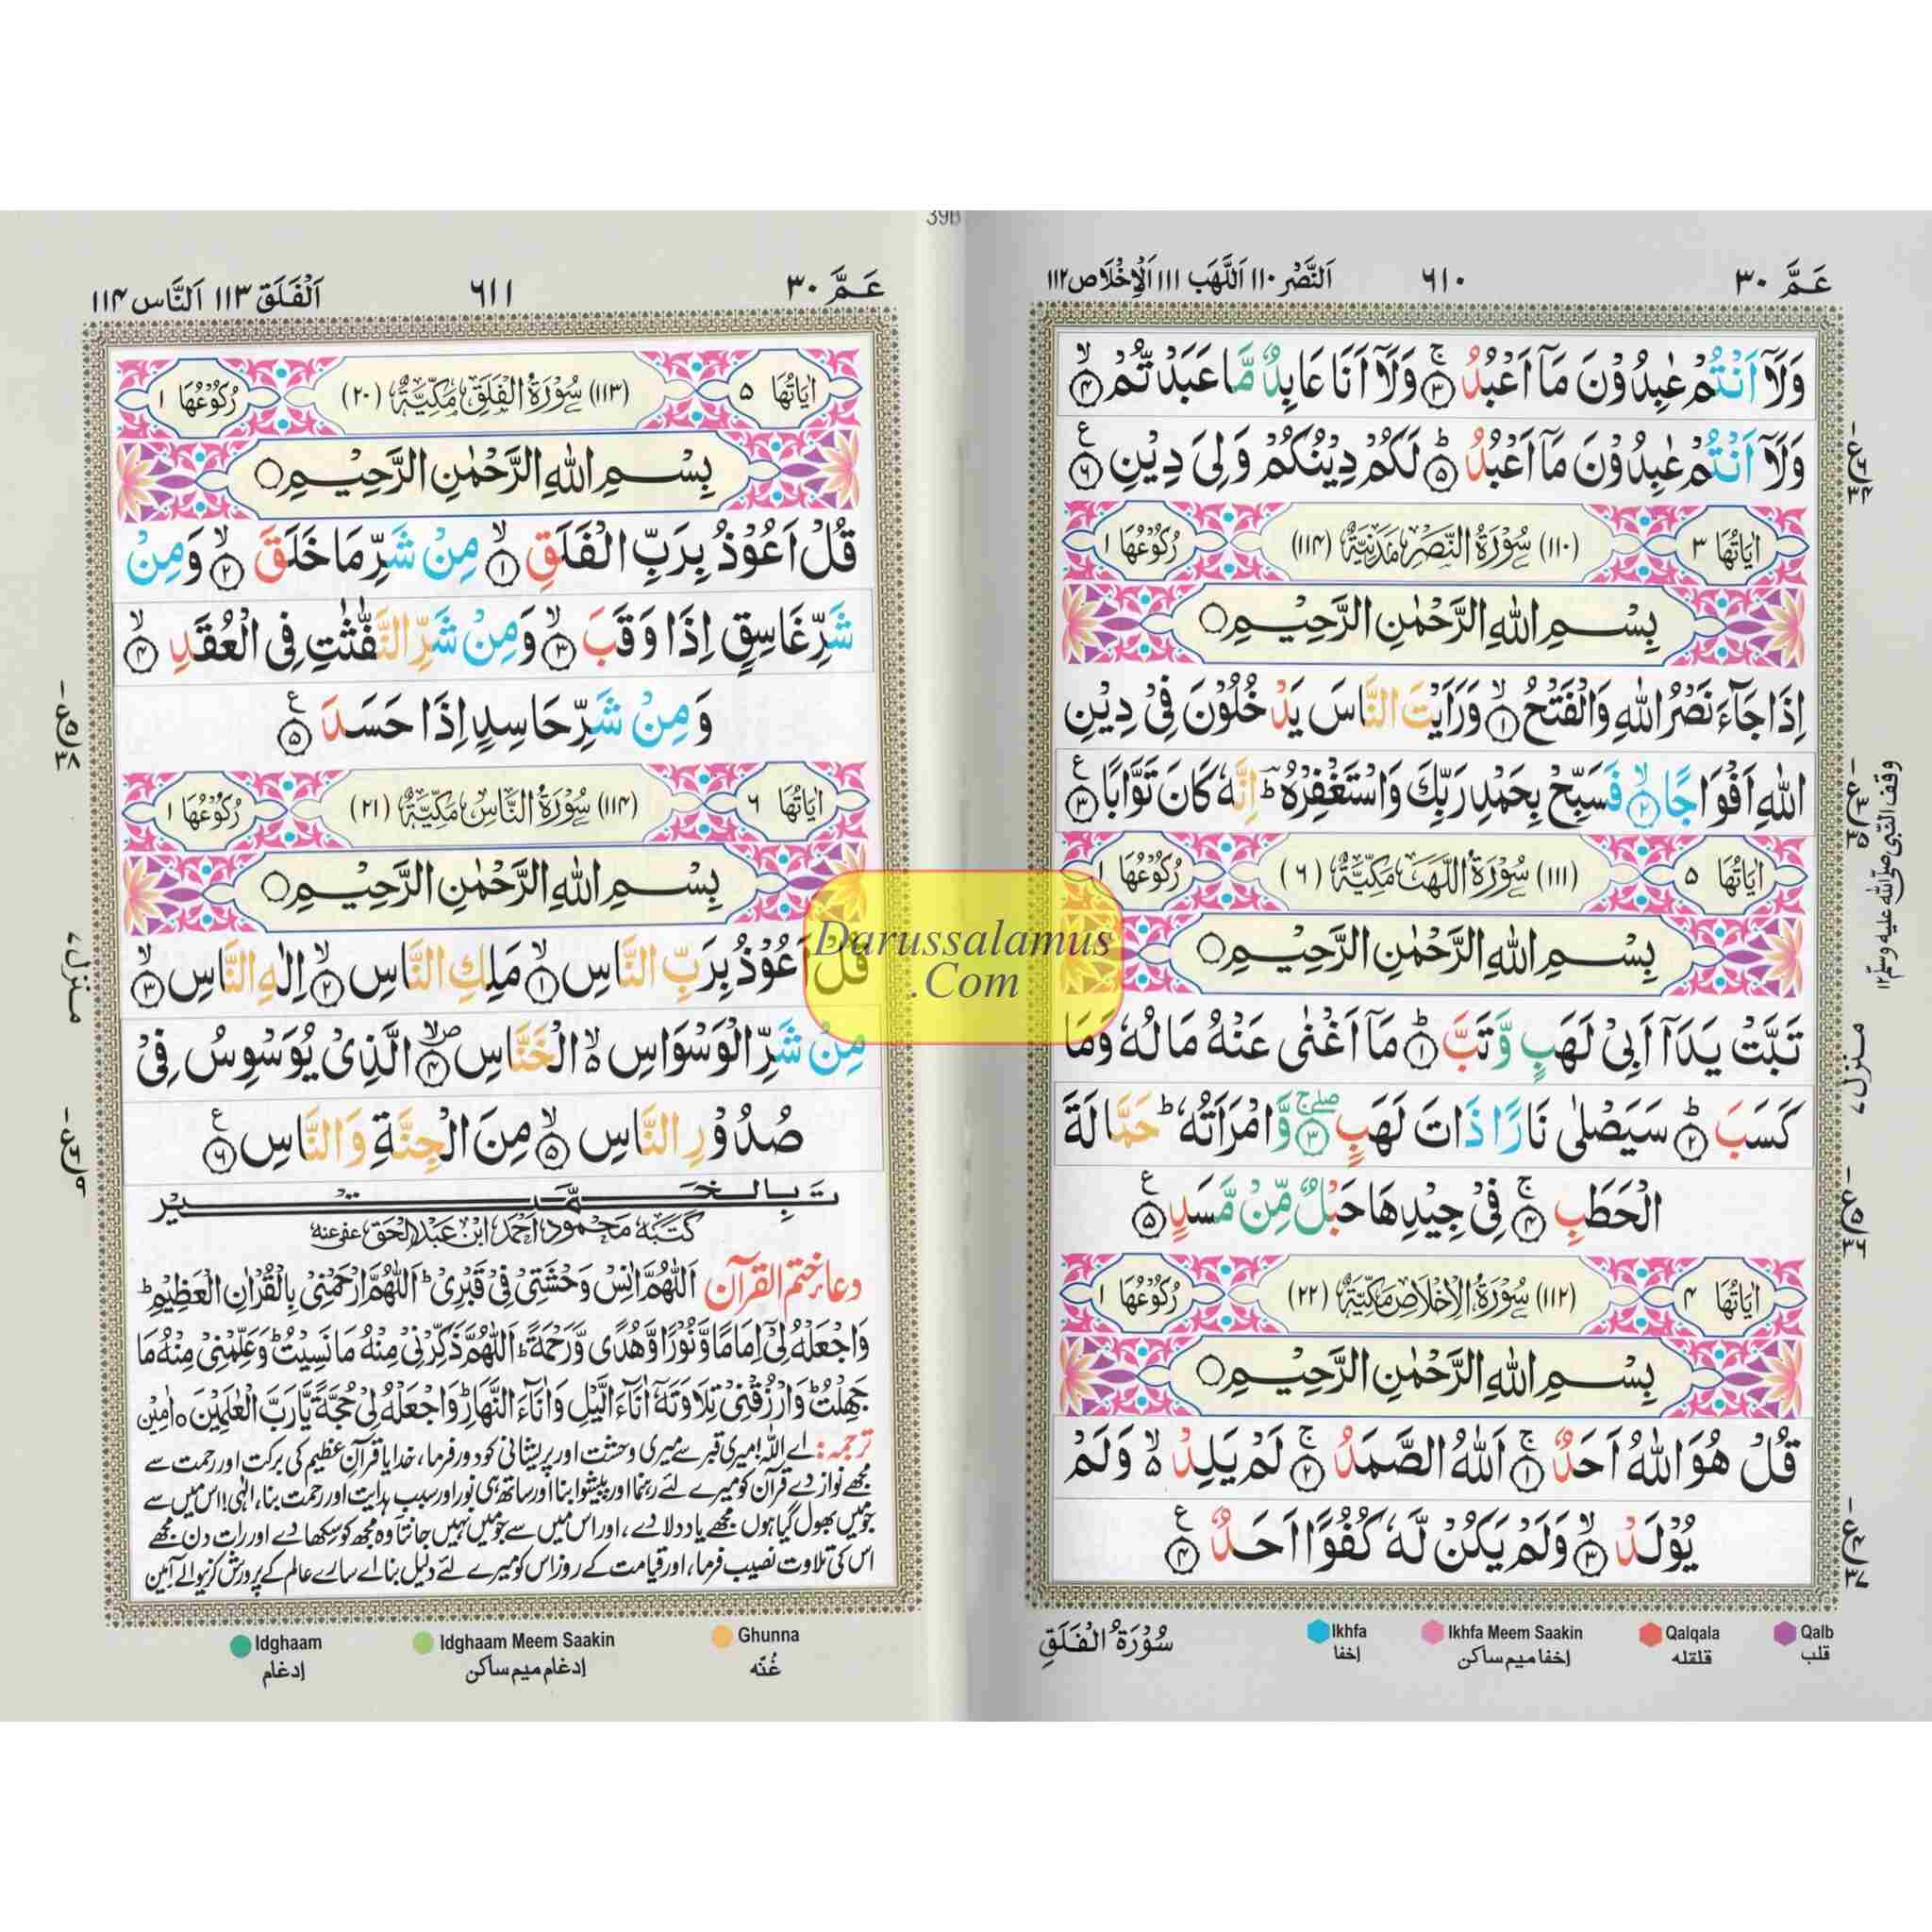 39B
عَمَّ ۳۰
۶۱۰
اَلنَّصْر ۱۱۰ اَللَّهَب ۱۱۱ اَلْاِخْلَاص ۱۱۲
وَلَاۤ اَنْتُمْ عٰبِدُوْنَ مَاۤ اَعْبُدُ ۚ ۳ وَلَاۤ اَنَا عَابِدٌ مَّا عَبَدْتُّمْ ۙ ۴
وَلَاۤ اَنْتُمْ عٰبِدُوْنَ مَاۤ اَعْبُدُ ؕ ۵ لَكُمْ دِيْنُكُمْ وَلِىَ دِيْنِ ۶ ع
اٰيَاتُهَا ۳ (۱۱۰) سُوْرَةُ النَّصْرِ مَدَنِيَّةٌ (۱۱۴) رُكُوْعُهَا ۱
بِسْمِ اللّٰهِ الرَّحْمٰنِ الرَّحِيْمِ
اِذَا جَآءَ نَصْرُ اللّٰهِ وَالْفَتْحُ ۙ ۱ وَرَاَيْتَ النَّاسَ يَدْخُلُوْنَ فِىْ دِيْنِ
اللّٰهِ اَفْوَاجًا ۙ ۲ فَسَبِّحْ بِحَمْدِ رَبِّكَ وَاسْتَغْفِرْهُ ؕ اِنَّهٗ كَانَ تَوَّابًا ۳ ع
اٰيَاتُهَا ۵ (۱۱۱) سُوْرَةُ اللَّهَبِ مَكِّيَّةٌ (۶) رُكُوْعُهَا ۱
بِسْمِ اللّٰهِ الرَّحْمٰنِ الرَّحِيْمِ
تَبَّتْ يَدَاۤ اَبِىْ لَهَبٍ وَّتَبَّ ؕ ۱ مَاۤ اَغْنٰى عَنْهُ مَالُهٗ وَمَا
كَسَبَ ؕ ۲ سَيَصْلٰى نَارًا ذَاتَ لَهَبٍ ۳ صلے ج وَّامْرَاَتُهٗ ؕ حَمَّالَةَ
الْحَطَبِ ۚ ۴ فِىْ جِيْدِهَا حَبْلٌ مِّنْ مَّسَدٍ ۵ ع
اٰيَاتُهَا ۴ (۱۱۲) سُوْرَةُ الْاِخْلَاصِ مَكِّيَّةٌ (۲۲) رُكُوْعُهَا ۱
بِسْمِ اللّٰهِ الرَّحْمٰنِ الرَّحِيْمِ
قُلْ هُوَ اللّٰهُ اَحَدٌ ۚ ۱ اَللّٰهُ الصَّمَدُ ۚ ۲ لَمْ يَلِدْ ۙ۵ وَلَمْ
يُوْلَدْ ۙ ۳ وَلَمْ يَكُنْ لَّهٗ كُفُوًا اَحَدٌ ۴ ع
وقف النبى صلى الله عليه وسلم ۱۲
منزل ۷
Qalb
قلب
Qalqala
قلقله
Ikhfa Meem Saakin
اخفا ميم ساكن
Ikhfa
اخفا
سُوْرَةُ الْفَلَقِ
عَمَّ ۳۰
۶۱۱
اَلْفَلَق ۱۱۳ اَلنَّاس ۱۱۴
اٰيَاتُهَا ۵ (۱۱۳) سُوْرَةُ الْفَلَقِ مَكِّيَّةٌ (۲۰) رُكُوْعُهَا ۱
بِسْمِ اللّٰهِ الرَّحْمٰنِ الرَّحِيْمِ
قُلْ اَعُوْذُ بِرَبِّ الْفَلَقِ ۙ ۱ مِنْ شَرِّ مَا خَلَقَ ۙ ۲ وَمِنْ
شَرِّ غَاسِقٍ اِذَا وَقَبَ ۙ ۳ وَمِنْ شَرِّ النَّفّٰثٰتِ فِى الْعُقَدِ ۙ ۴
وَمِنْ شَرِّ حَاسِدٍ اِذَا حَسَدَ ۵ ع
اٰيَاتُهَا ۶ (۱۱۴) سُوْرَةُ النَّاسِ مَكِّيَّةٌ (۲۱) رُكُوْعُهَا ۱
بِسْمِ اللّٰهِ الرَّحْمٰنِ الرَّحِيْمِ
قُلْ اَعُوْذُ بِرَبِّ النَّاسِ ۙ ۱ مَلِكِ النَّاسِ ۙ ۲ اِلٰهِ النَّاسِ ۙ ۳
مِنْ شَرِّ الْوَسْوَاسِ ۙ۵ الْخَنَّاسِ ۴ صلا الَّذِىْ يُوَسْوِسُ فِىْ
صُدُوْرِ النَّاسِ ۙ ۵ مِنَ الْجِنَّةِ وَالنَّاسِ ۶ ع
تَمَّت بِالخَير
كَتَبَهٗ مَحْمُود اَحْمَد ابْن عَبْد الْحَق عفى عنه
دعاء ختم القرآن اَللّٰهُمَّ اٰنِسْ وَحْشَتِىْ فِىْ قَبْرِىْ ؕ اَللّٰهُمَّ ارْحَمْنِىْ بِالْقُرْاٰنِ الْعَظِيْمِ ؕ
وَاجْعَلْهُ لِىْۤ اِمَامًا وَّنُوْرًا وَّهُدًى وَّرَحْمَةً ؕ اَللّٰهُمَّ ذَكِّرْنِىْ مِنْهُ مَا نَسِيْتُ وَعَلِّمْنِىْ مِنْهُ مَا
جَهِلْتُ وَارْزُقْنِىْ تِلَاوَتَهٗۤ اٰنَآءَ الَّيْلِ وَاٰنَآءَ النَّهَارِ وَاجْعَلْهُ لِىْ حُجَّةً يَّارَبَّ الْعٰلَمِيْنَ ۵ اٰمِيْن
ترجمہ: اے اللہ! میری قبر سے میری وحشت اور پریشانی کو دور فرما، خدایا قرآن عظیم کی برکت اور رحمت سے
مجھے نواز دے قرآن کو میرے لئے رہنما اور پیشوا بنا اور ساتھ ہی نور اور سبب ہدایت اور رحمت بنا، الٰہی! اس میں سے
جو میں بھول گیا ہوں مجھے یاد دلا دے، اور اس میں سے جو میں نہیں جانتا وہ مجھ کو سکھا دے اور رات دن مجھے
اس کی تلاوت نصیب فرما، اور قیامت کے روز اس کو میرے لئے دلیل بنا اے سارے عالم کے پرورش کرنیوالے آمین
منزل ۷
Ghunna
غُنّه
Idghaam Meem Saakin
ادغام ميم ساكن
Idghaam
ادغام
Darussalamus
.Com